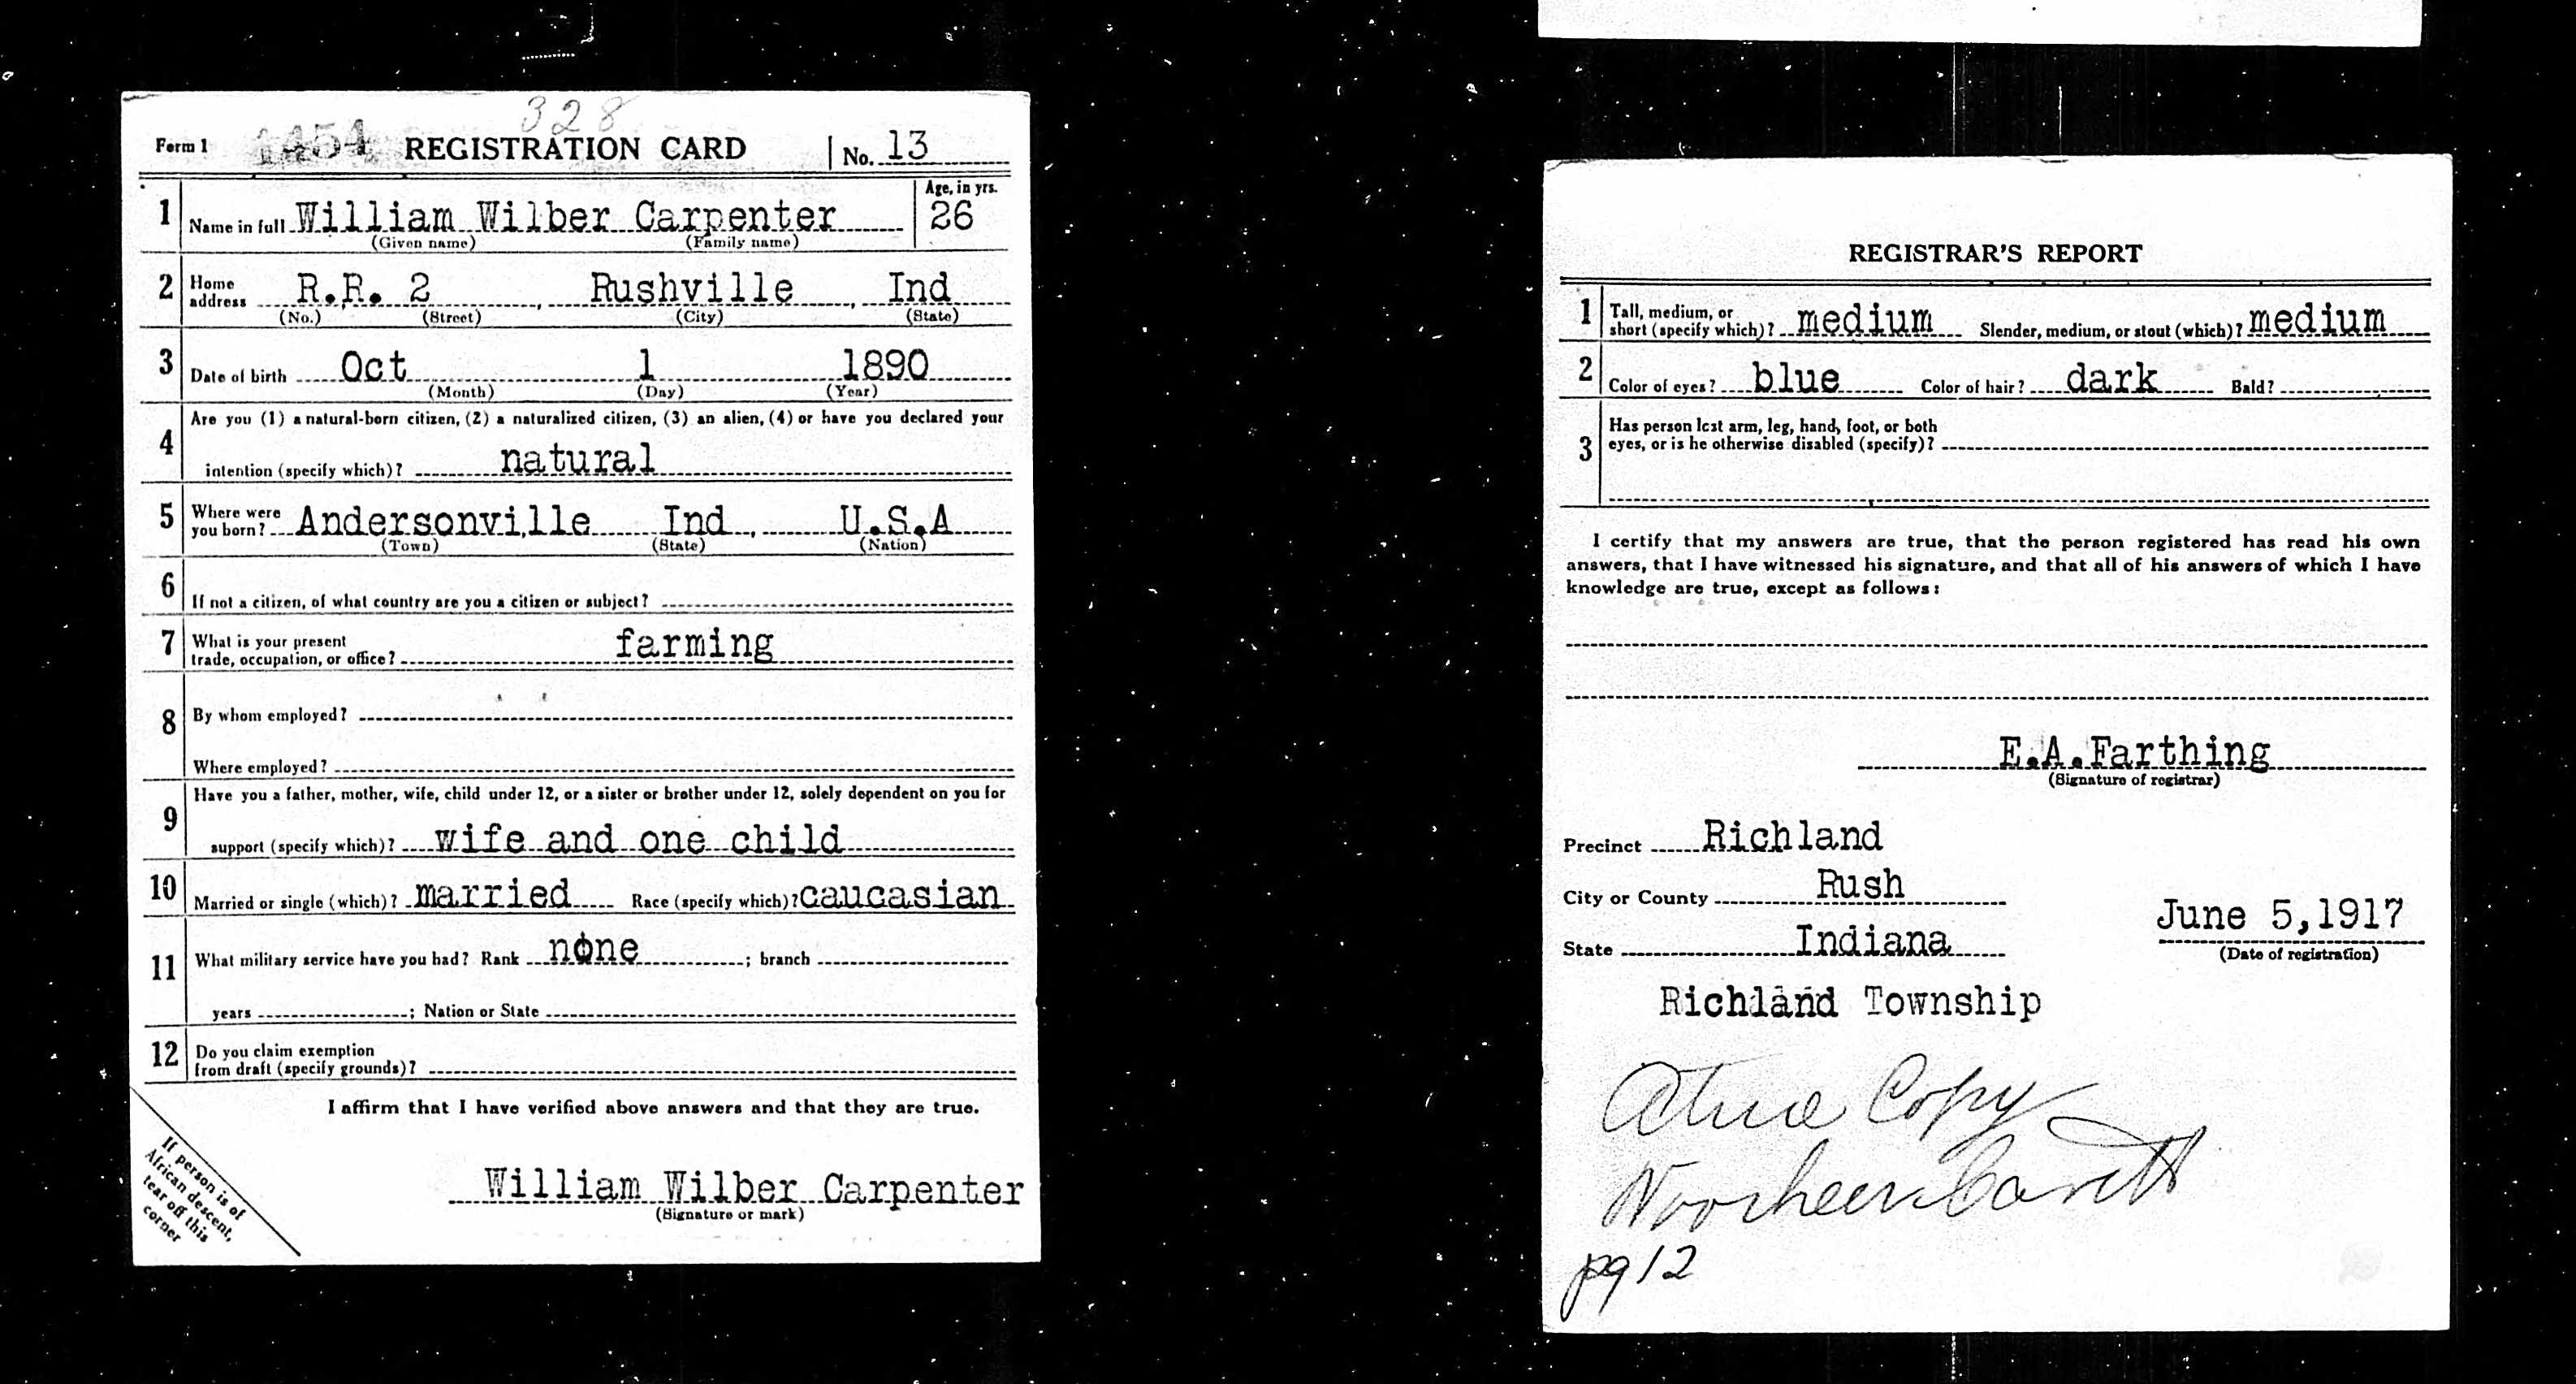 328
Form 1 1454 REGISTRATION CARD No. 13
1 Name in full William Wilber Carpenter Age, in yrs. 26
(Given name) (Family name)
2 Home address R.R. 2, Rushville, Ind
(No.) (Street) (City) (State)
3 Date of birth Oct 1 1890
(Month) (Day) (Year)
4 Are you (1) a natural-born citizen, (2) a naturalized citizen, (3) an alien, (4) or have you declared your
intention (specify which)? natural
5 Where were you born? Andersonville Ind, U.S.A
(Town) (State) (Nation)
6 If not a citizen, of what country are you a citizen or subject?
7 What is your present
trade, occupation, or office? farming
8 By whom employed?
Where employed?
9 Have you a father, mother, wife, child under 12, or a sister or brother under 12, solely dependent on you for
support (specify which)? wife and one child
10 Married or single (which)? married Race (specify which)? caucasian
11 What military service have you had? Rank none; branch
years ; Nation or State
12 Do you claim exemption
from draft (specify grounds)?
I affirm that I have verified above answers and that they are true.
William Wilber Carpenter
(Signature or mark)
If person is of
African descent,
tear off this
corner
REGISTRAR'S REPORT
1 Tall, medium, or
short (specify which)? medium Slender, medium, or stout (which)? medium
2 Color of eyes? blue Color of hair? dark Bald?
3 Has person lost arm, leg, hand, foot, or both
eyes, or is he otherwise disabled (specify)?
I certify that my answers are true, that the person registered has read his own
answers, that I have witnessed his signature, and that all of his answers of which I have
knowledge are true, except as follows:
E.A.Farthing
(Signature of registrar)
Precinct Richland
City or County Rush
State Indiana
June 5,1917
(Date of registration)
Richland Township
A true Copy
pg 12